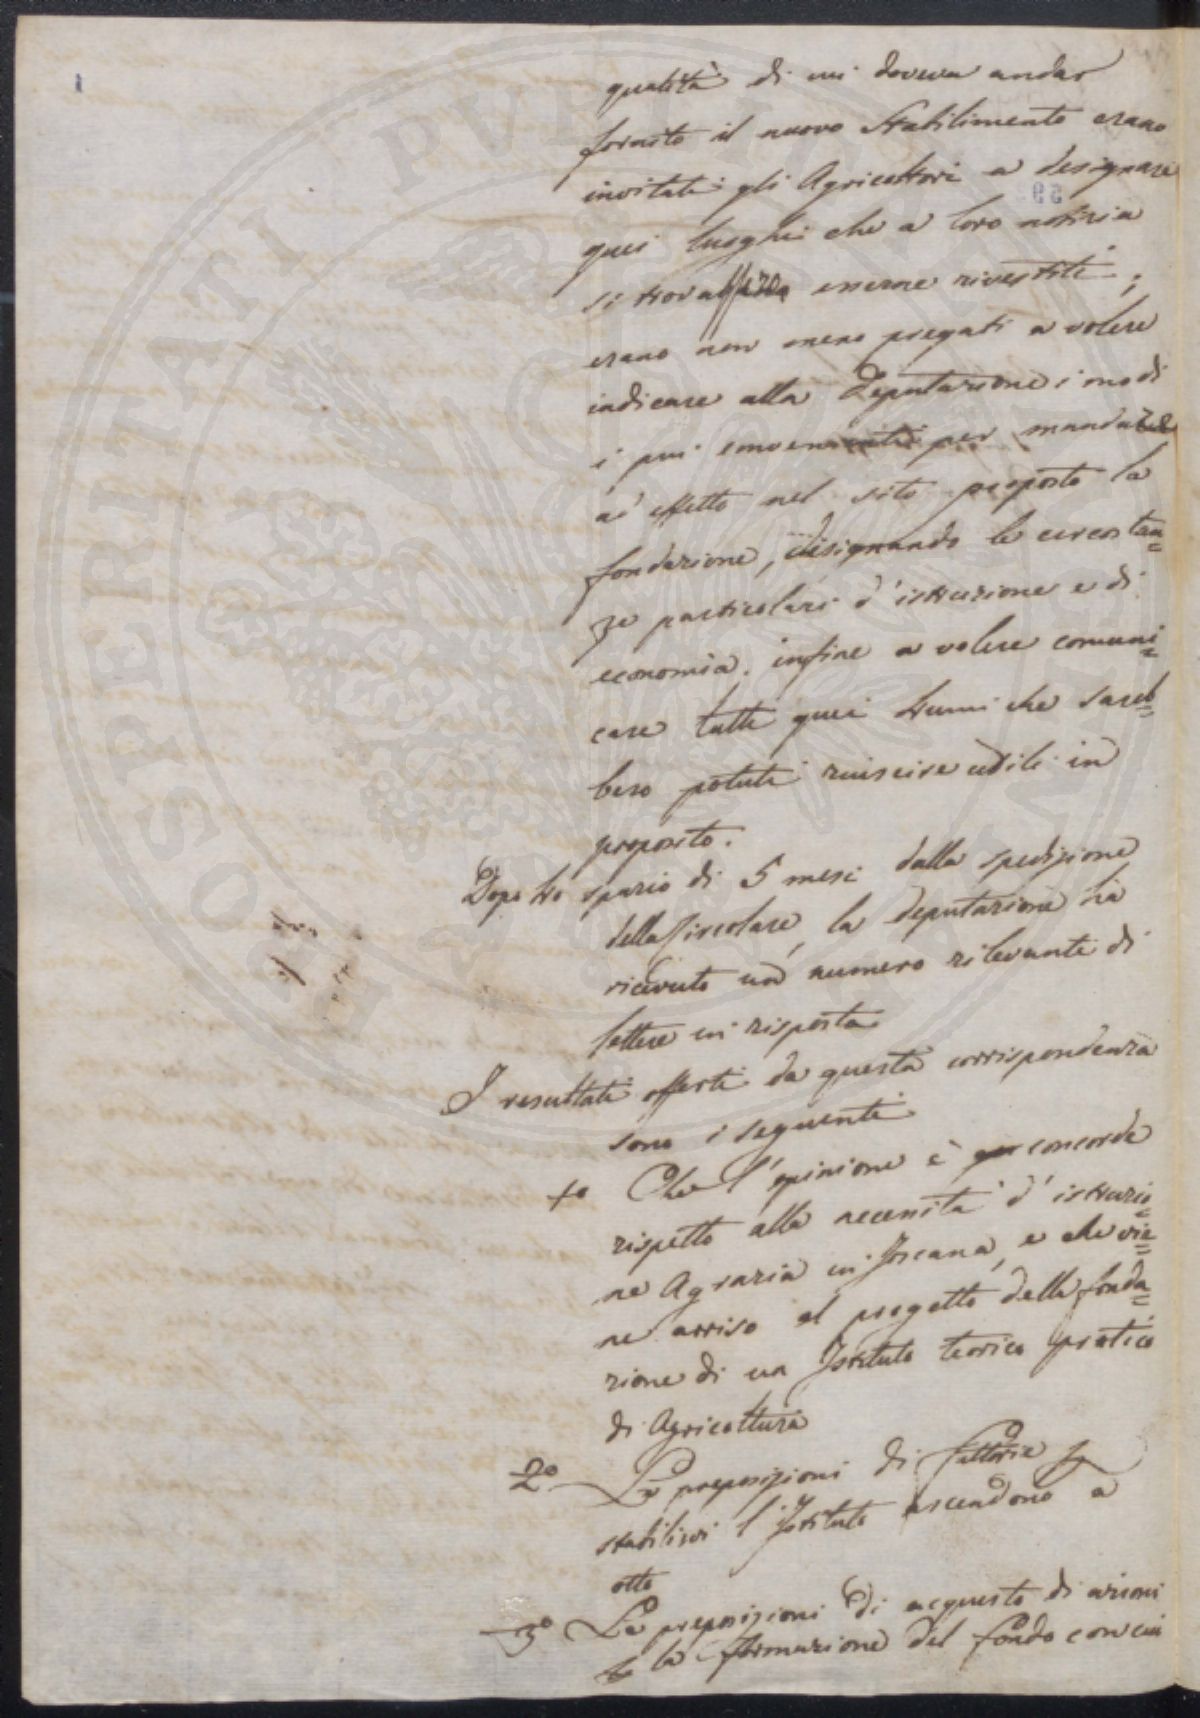 qualità di cui doveva andar
fornito il nuovo Stabilimento erano
invitati gli Agricoltori a designare
quei luoghi che a loro notizia
si trovassero esserne rivestiti;
erano non meno pregati a volere
indicare alla Deputazione i modi
i piu convenienti per mandare
ad effetto nel sito proposto la
fondazione, disignando le circostan=
ze particolari d'istruzione e di
economia. infine a volere comuni=
care tutti quei lumi che sareb=
bero potuti riuscire utili in
proposito.
Dopo lo spazio di 5 mesi dalla spedizione
della Circolare, la deputazione ha
ricevuto un numero rilevante di
lettere in risposta
I resultati offerti da questa corrispondenza
sono i seguenti
1° Che l'opinione è concorde
rispetto alla necessità d'istruzio=
ne Agraria in Toscana, e che vie=
ne arriso al progetto della fonda=
zione di un Istituto teorico pratico
di Agricoltura
2° Le proposizioni di fattorie p
stabilirvi l'Istituto ascendono a
otto
3° Le proposizioni di acquisto di azioni
p la formazione del fondo con cui
PROSPERITATI